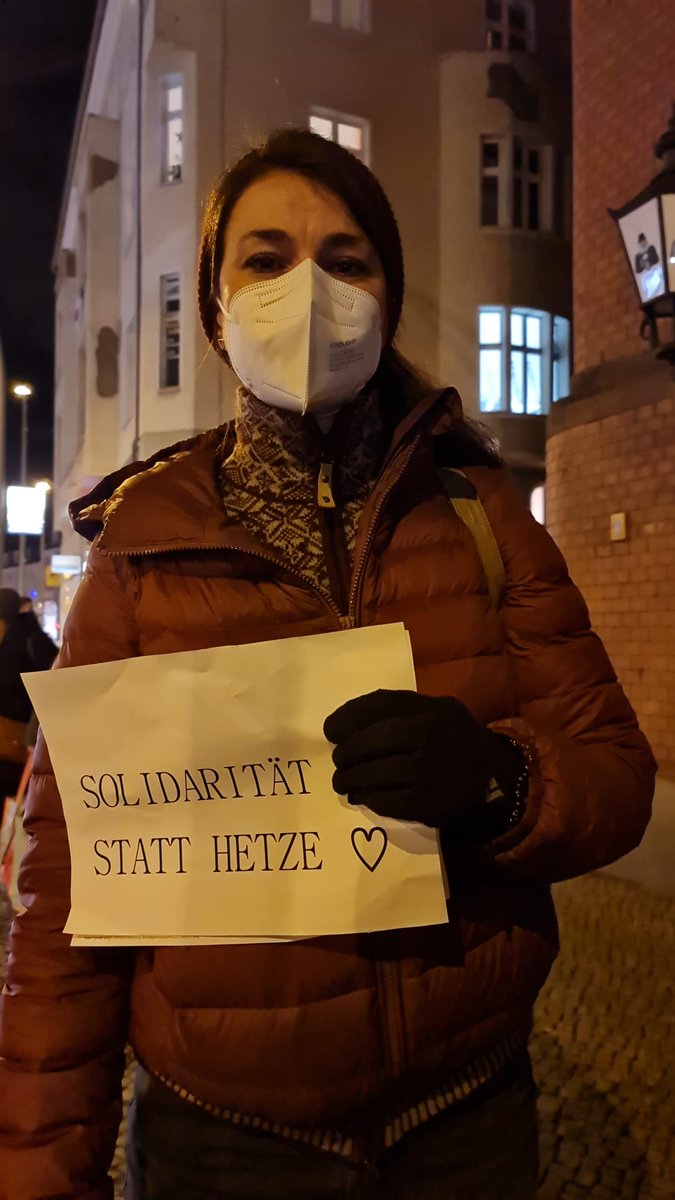 SOLIDARITÄT
STATT HETZE ♡